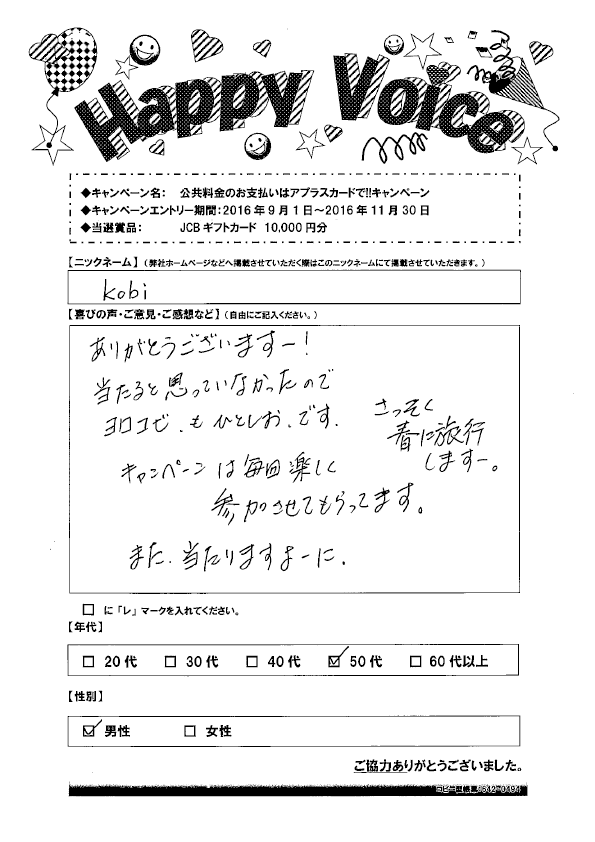 Happy Voice
◆キャンペーン名： 公共料金のお支払いはアプラスカードで!!キャンペーン
◆キャンペーンエントリー期間：2016年9月1日～2016年11月30日
◆当選賞品： JCBギフトカード 10,000円分
【ニックネーム】（弊社ホームページなどへ掲載させていただく際はこのニックネームにて掲載させていただきます。）
kobi
【喜びの声・ご意見・ご感想など】（自由にご記入ください。）
ありがとうございますー！
当たると思っていなかったので
ヨロコビ、もひとしお、です。
さっそく
春に旅行
しますー。
キャンペーンは毎回楽しく
参加させてもらってます。
また、当たりますよーに。
□に「レ」マークを入れてください。
【年代】
□ 20代 □ 30代 □ 40代 ☑ 50代 □ 60代以上
【性別】
☑ 男性 □ 女性
ご協力ありがとうございました。